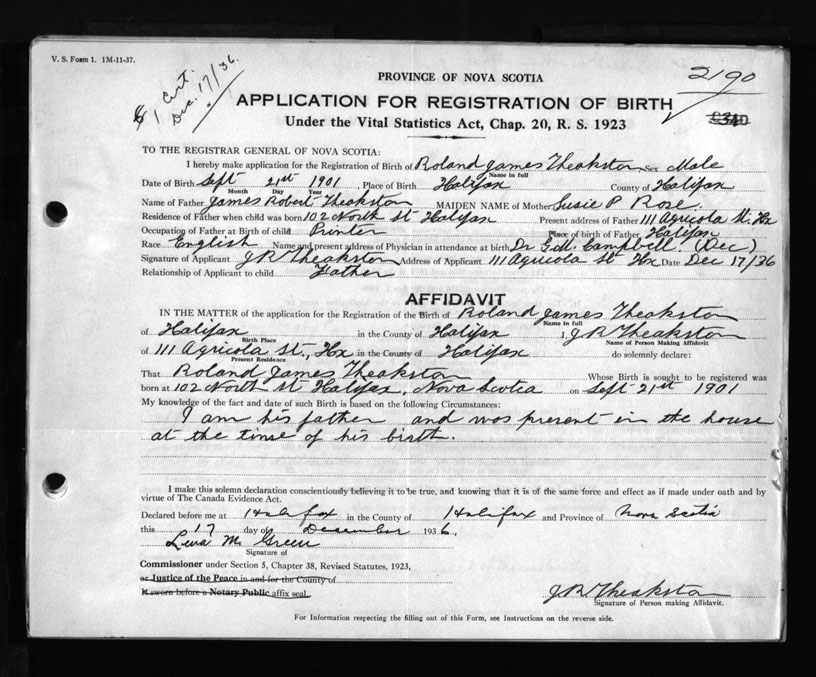 V. S. Form 1. 1M-11-37.
1 Cert.
Dec. 17/36.
2190
PROVINCE OF NOVA SCOTIA
APPLICATION FOR REGISTRATION OF BIRTH
Under the Vital Statistics Act, Chap. 20, R. S. 1923
TO THE REGISTRAR GENERAL OF NOVA SCOTIA:
I hereby make application for the Registration of Birth of Roland James Theakston Sex Male
Name in full
Date of Birth Sept 21st 1901, Place of Birth Halifax County of Halifax
Month Day Year
Name of Father James Robert Theakston MAIDEN NAME of Mother Susie P Rose.
Residence of Father when child was born 102 North St Halifax Present address of Father 111 Agricola St. Hx
Occupation of Father at Birth of child Printer Place of birth of Father Halifax
Race English Name and present address of Physician in attendance at birth Dr G.M. Campbell (Dec)
Signature of Applicant J R Theakston Address of Applicant 111 Agricola St Hx Date Dec 17/36
Relationship of Applicant to child Father
AFFIDAVIT
IN THE MATTER of the application for the Registration of the Birth of Roland James Theakston
Name in full
of Halifax in the County of Halifax I, J R Theakston
Birth Place Name of Person Making Affidavit
of 111 Agricola St., Hx in the County of Halifax do solemnly declare:
Present Residence
That Roland James Theakston Whose Birth is sought to be registered was
born at 102 North St Halifax, Nova Scotia on Sept 21st 1901
My knowledge of the fact and date of such Birth is based on the following Circumstances:
I am his father and was present in the house
at the time of his birth.
I make this solemn declaration conscientiously believing it to be true, and knowing that it is of the same force and effect as if made under oath and by
virtue of The Canada Evidence Act.
Declared before me at Halifax in the County of Halifax and Province of Nova Scotia
this 17 day of December 1936.
Lena M. Green
Signature of
Commissioner under Section 5, Chapter 38, Revised Statutes, 1923,
or Justice of the Peace in and for the County of
If sworn before a Notary Public affix seal.
J R Theakston
Signature of Person making Affidavit.
For Information respecting the filling out of this Form, see Instructions on the reverse side.